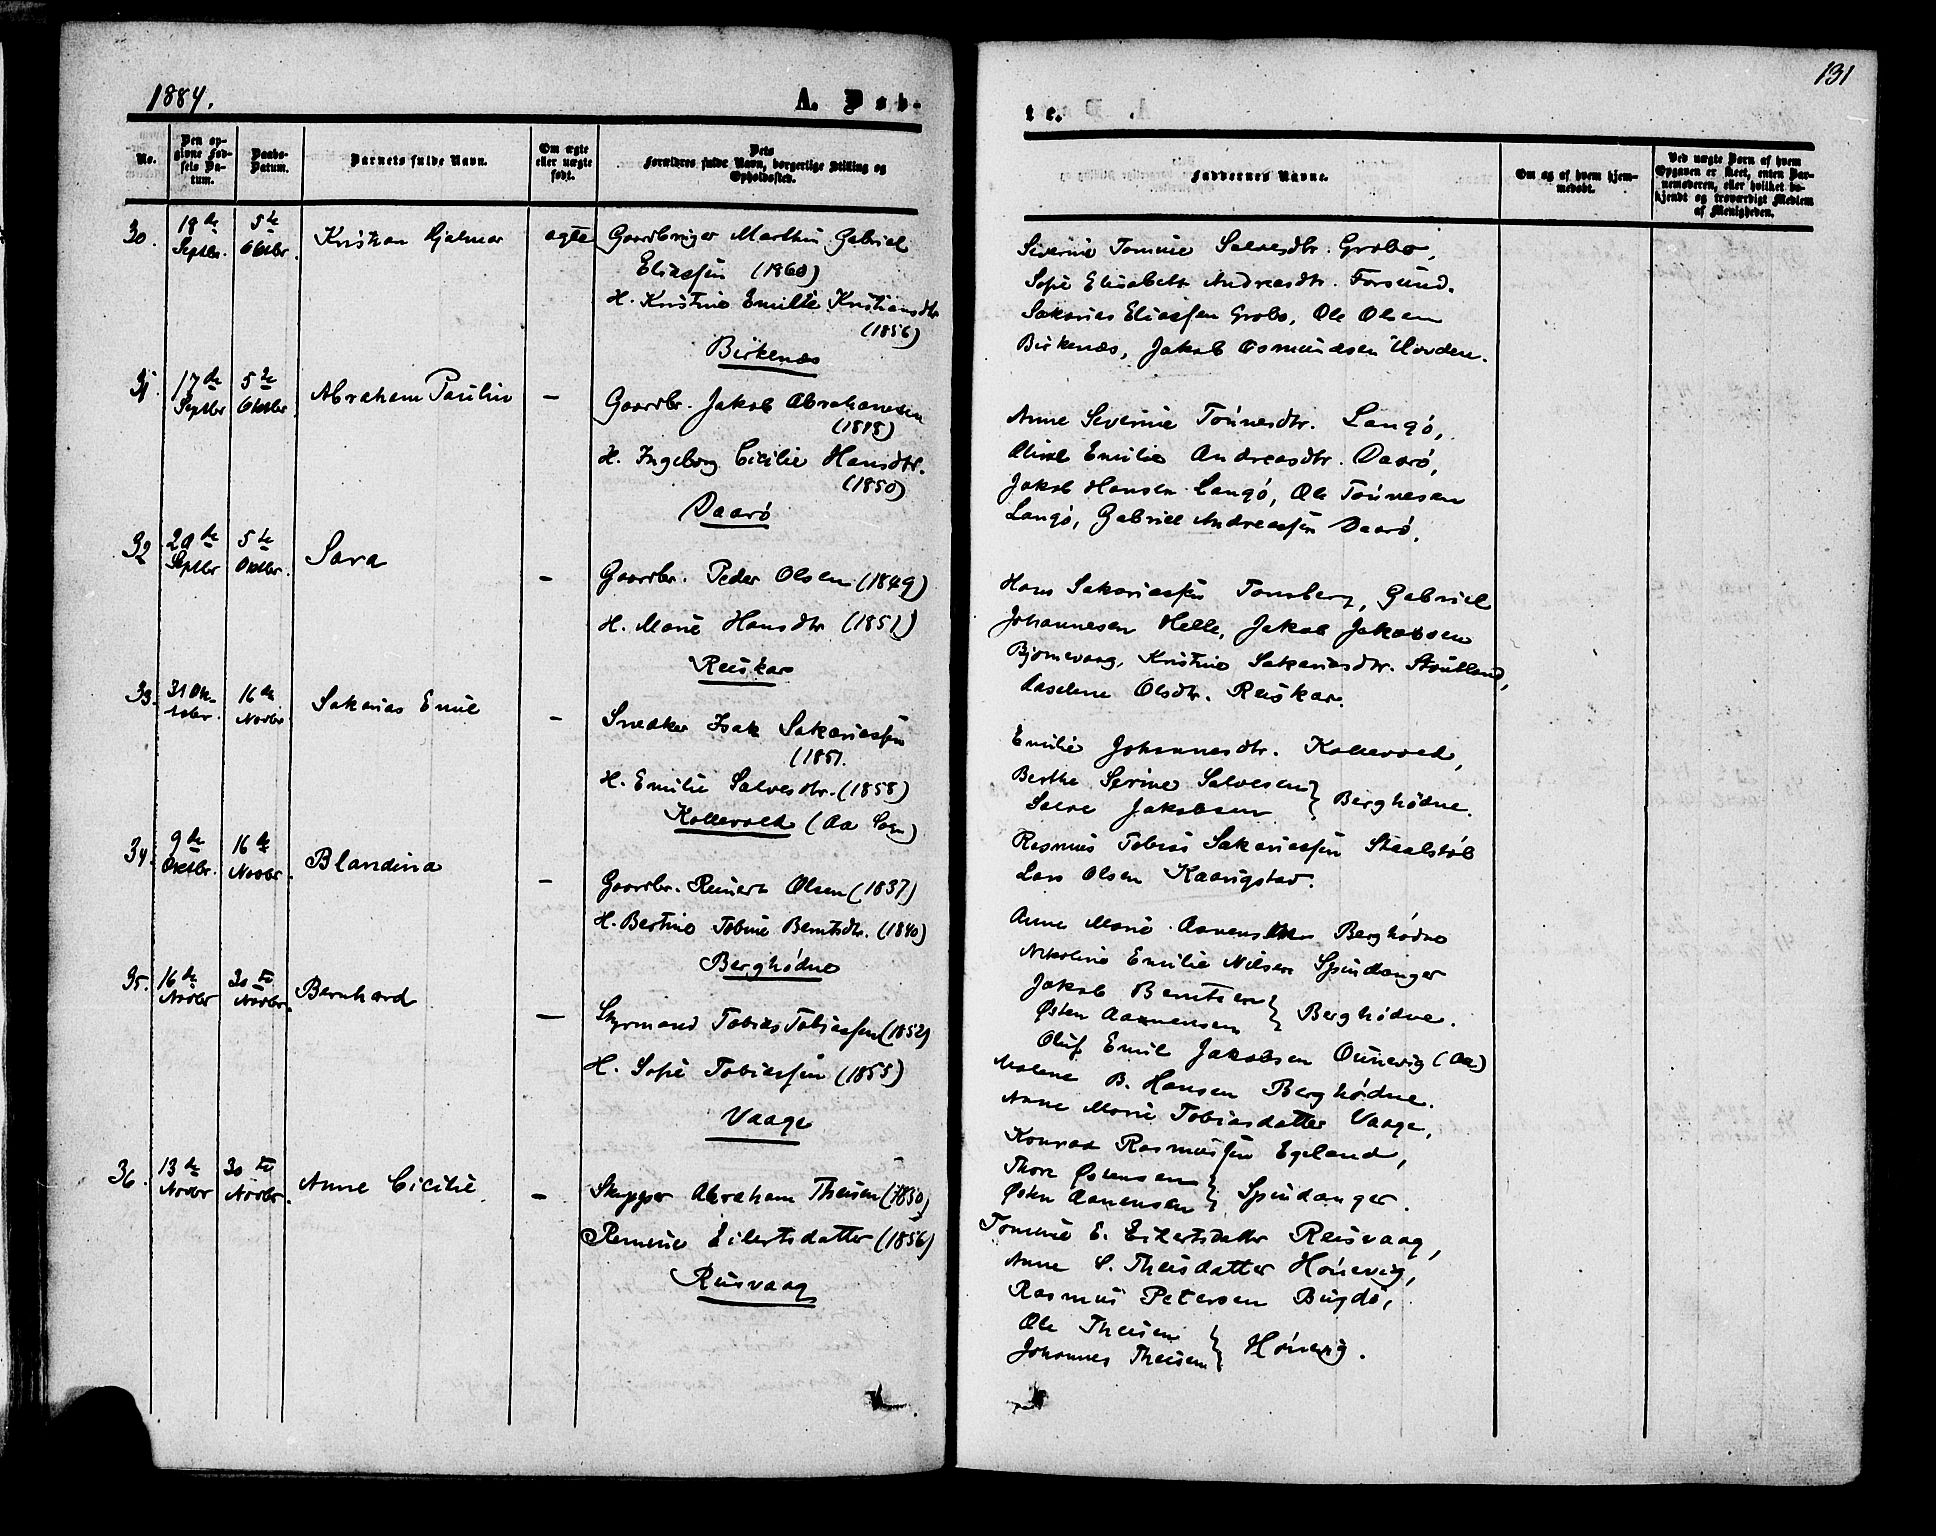 1884.
A. Døb-
No.
Den opgivne Fødsels Datum.
Daabs-Datum.
Barnets fulde Navn.
Om ægte eller uægte født.
Dets Forældres fulde Navn, borgerlige Stilling og Opholdssted.
30.
18de Septbr.
5te Oktbr.
Kristian Hjalmar
ægte
Gaardbruger Marthin Gabriel
Eliassen (1860)
H. Kristine Emilie Kristiansdtr
(1856)
Birkenæs
31.
17de Septbr
5te Oktbr.
Abraham Paulin
—
Gaardbr. Jakob Abrahamsen
(1818)
H. Ingeborg Cicilie Hansdtr.
(1850)
Daarø
32
20de Septbr
5te Oktbr.
Sara
—
Gaardbr. Peder Olsen (1849)
H. Marie Hansdtr (1851)
Reiskar
33.
31 Oktober.
16de Novbr
Sakarias Emil
—
Snedker Isak Sakariassen
(1851.
H. Emilie Salvesdtr. (1858)
Kollevold (Aa Sogn)
34.
9de Oktbr.
16de Novbr.
Blandina
—
Gaardbr. Reinert Olsen (1837)
H. Bertine Tobine Berntsdtr. (1840)
Berghødne
35.
16de Novbr
30te Novbr.
Bernhard
—
Styrmand Tobias Tobiassen (1852)
H. Sofie Tobiassen (1855)
Vaage
36.
13de Novbr
30te Novbr.
Anne Cicilie
—
Skipper Abraham Theisen (1830)
Remine Eilertsdatter (1856)
Reisvaag
131
te.
Faddernes Navne.
Om og af hvem hjemmedøbt.
Ved uægte Børn af hvem Opgaven er skeet, enten Barnemoderen, eller hvilket bekjendt og troværdigt Medlem af Menigheden.
Severine Tomine Salvesdtr. Grobo,
Sofie Elisabeth Andreasdtr. Forsund.
Sakarias Eliassen Grobo, Ole Olsen
Birkenæs, Jakob Osmundsen Hovden.
Anne Severine Tønnesdtr. Langø,
Emilie Andreasdtr. Daarø,
Jakob Hansen Langø, Ole Tønnesen
Langø, Gabriel Andreassen Daarø.
Hans Sakariassen Tomsberg, Gabriel
Johannesen Helle, Jakob Jakobsen
Bjørnevaag, Kristine Sakariasdtr.
Aaselene Olsdtr. Reiskar.
Emilie Johannesdtr. Kollevold,
Berthe Serine Salvesen } Berghødne.
Salve Jakobsen
Rasmus Tobias Sakariassen Staalstøl
Lars Olsen Kaarigstad.
Anne Marie Berghødne
Nikoline Emilie Nilsen Spindanger
Jakob Berntsen } Berghødne.
Østen Aanensen
Oluf Emil Jakobsen Ounevig (Aa)
Malene B. Hansen Berghødne.
Anne Marie Tobiasdatter Vaage,
Konrad Rasmussen Egeland,
Thore Østensen } Spindanger.
Østen Aanensen
Tomine E. Eilertsdatter Reisvaag,
Anne S. Theisdatter Hønevig,
Rasmus Petersen Bugdø,
Ole Theisen } Hønevig.
Johannes Theisen